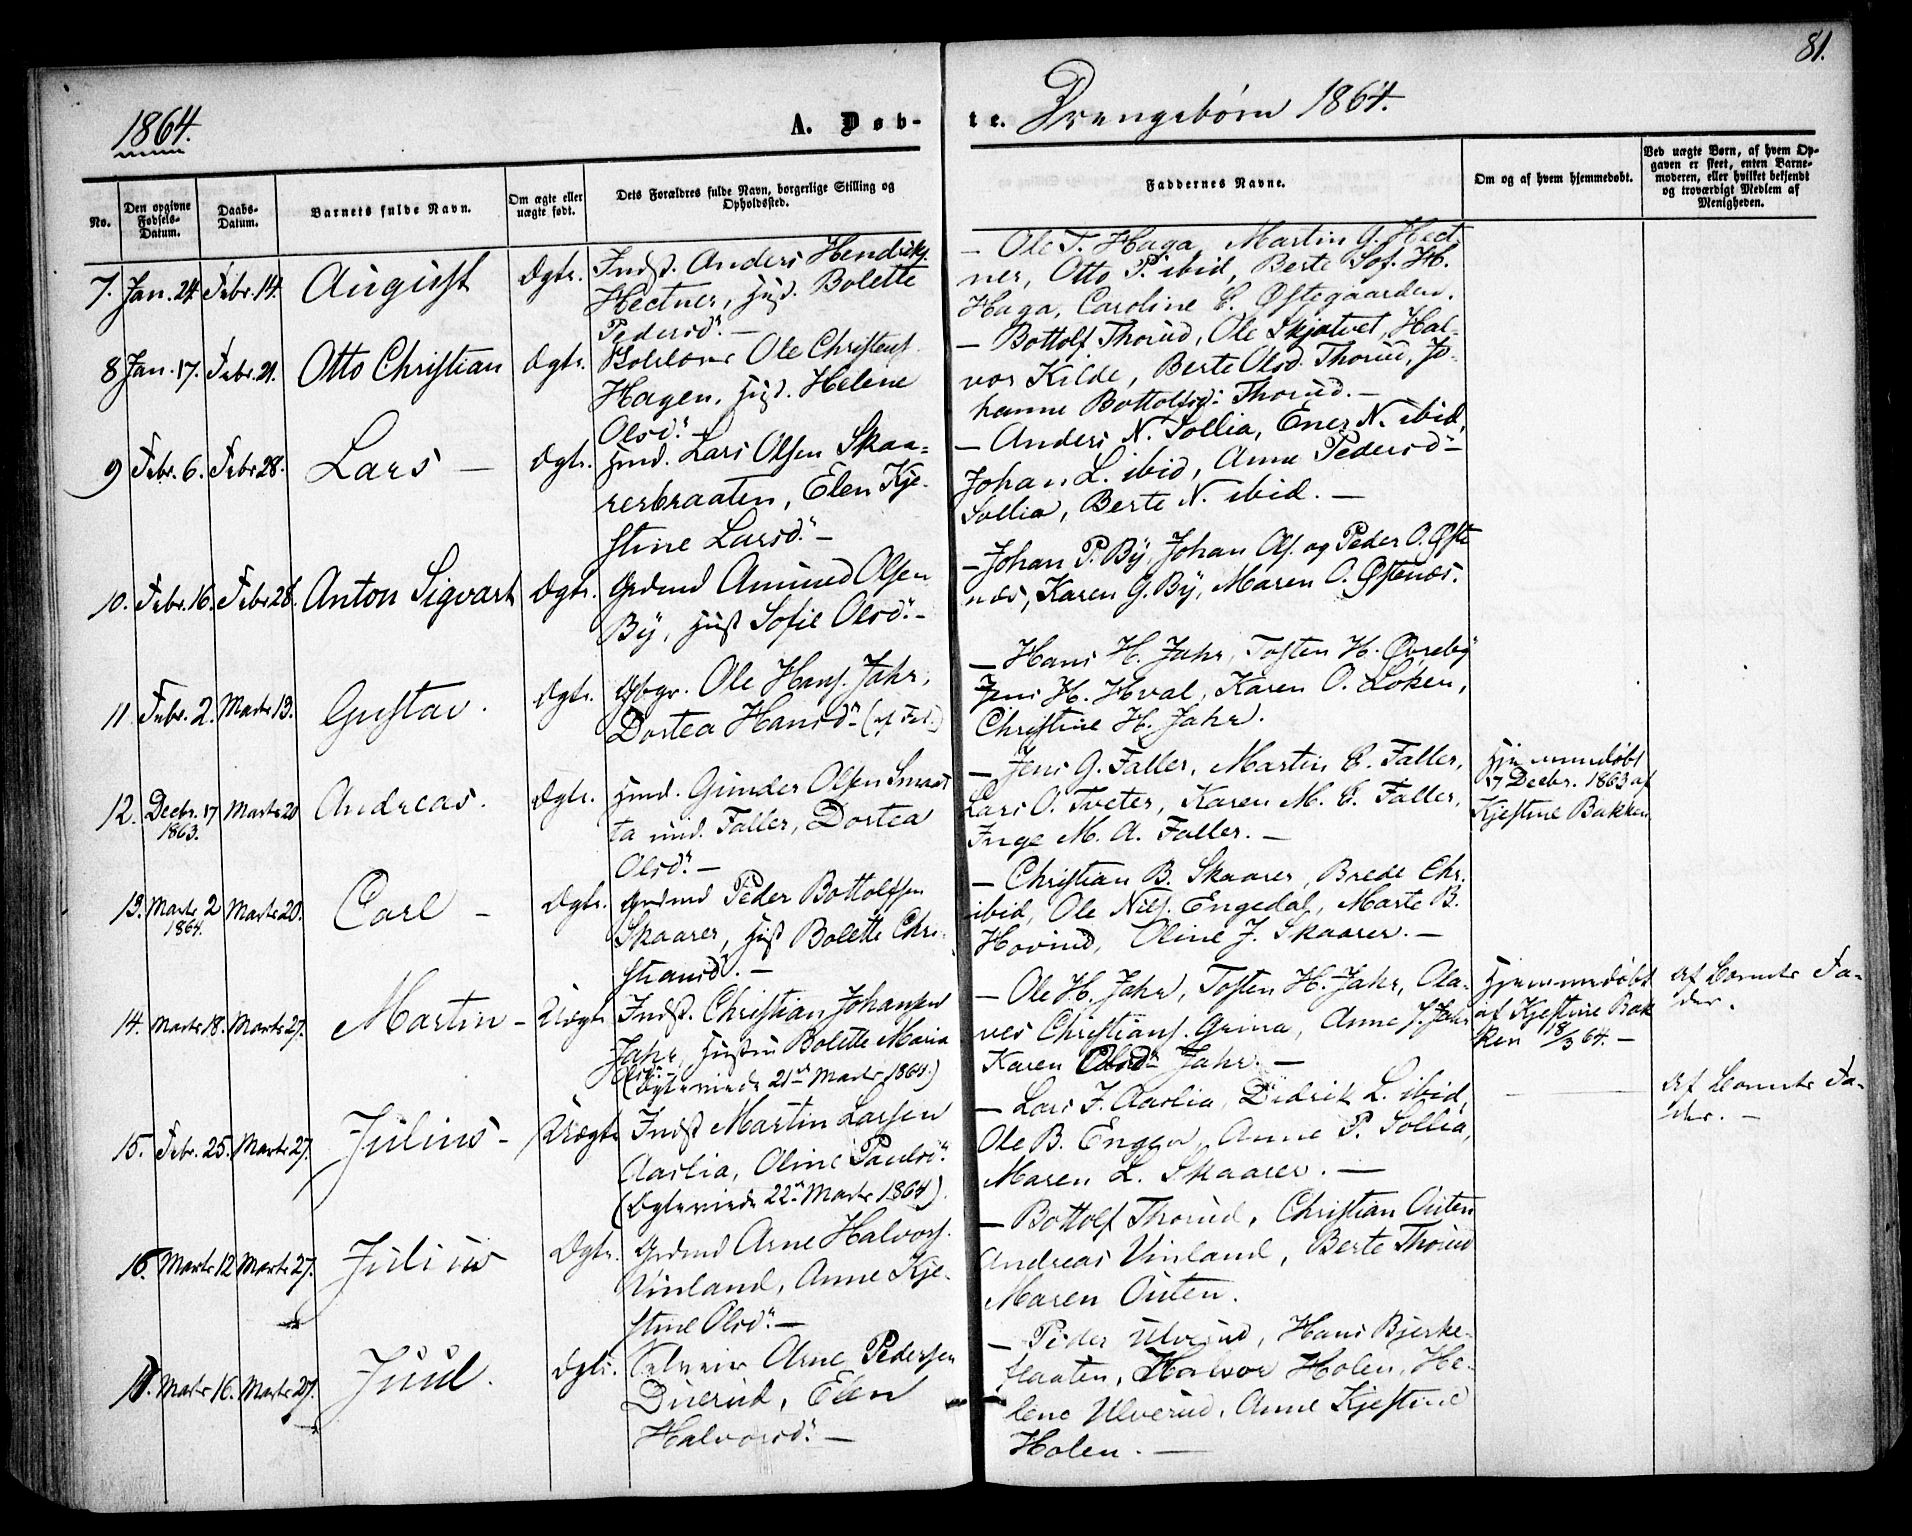 81.
1864.
A. Døb-
te. Drengebørn 1864.
No.
Den opgivne Fødsels-Datum.
Daabs-Datum.
Barnets fulde Navn.
Om ægte eller uægte født.
Dets Forældres fulde Navn, borgerlige Stilling og Opholdssted.
Faddernes Navne.
Om og af hvem hjemmedøbt.
Ved uægte Børn, af hvem Op-
gaven er skeet, enten Barne-
moderen, eller hvilket bekjendt
og troværdigt Medlem af
Menigheden.
7. Jan. 24. Febr. 14. August Ægte.
Indst. Anders Hendriks.
Hectner, Hust. Bolette
Pedersd. —
— Ole T. Haga, Martin G. Hect-
ner, Otto P. ibid, Berte Sof. H.
Haga, Caroline E. Østegaarden.
8 Jan. 17. Febr. 21. Otto Christian Ægte.
Ole Christens.
Hagen, Hust. Helene
Olsd. —
— Bottolf Thorud, Ole Skjatvet, Hal-
vor Kilde, Berte Olsd. Thorud, Jo-
hanne Bottolfsd. Thorud. —
9 Febr. 6. Febr. 28. Lars — Ægte.
Husmd. Lars Olsen Skaa-
rerbraaten, Elen Kje-
stine Larsd. —
— Anders N. Sollia, Ener N. ibid,
Johan L. ibid, Anne Pedersd.
Sollia, Berte N. ibid. —
10. Febr. 16. Febr. 28. Anton Sigvart Ægte.
Grdmd Amund Olsen
By, Hust Sofie Olsd. —
— Johan P. By, Johan Ols. og Peder O. Øste
næs, Karen G. By, Maren O. Østenæs.
11. Febr. 2. Marts 13. Gustav. Ægte.
Ole Hans. Jahr,
Dortea Hansd.
— Hans H. Jahr, Tosten H. Øvreby
Jens H. Hval, Karen O. Løken,
Christine H. Jahr.
12. Decbr. 17 1863. Marts 20 Andreas. Ægte.
Husmd. Gunder Olsen Smaat
ta und. Faller, Dortea
Olsd. —
— Jens G. Faller, Martin E. Faller,
Lars O. Tveter, Karen M. E. Faller,
Inge M. A. Faller. —
Hjemmedøbt
17 Decbr. 1863 af
Kjestine Bakken
13. Marts 2 1864. Marts 20. Carl — Ægte.
Grdmd Peder Bottolfsen
Skaarer, Hust Bolette Chri-
stiansd. —
— Christian B. Skaarer, Brede Chr.
ibid, Ole Nils. Engedal, Marte B.
Hovind, Oline J. Skaarer. —
14. Marts 18. Marts 27. Martin — Uægte
Indst. Christian Johansen
Jahr, Hustru Bolette Maria
Olsd.
(Ægteviede 21de Marts 1864)
— Ole H. Jahr, Tosten H. Jahr, Ola-
ves Christians. Grina, Anne J. Jahr
Karen Olsd. Jahr. —
Hjemmedøbt
af Kjestine Bak
ken 18/3 64. —
Af Barnets Fa-
der.
15. Febr. 25. Marts 27. Julius — Uægte
Indst Martin Larsen
Aaslia, Oline Paulsd.
(Ægteviede 22de Marts 1864).
— Lars J. Aaslia, Didrik L. ibid,
Ole B. Enger, Anne P. Sollia,
Maren L. Skaarer. —
Af Barnets Fa-
der. —
16. Marts 12 Marts 27. Julius Ægte.
Grdmd Arne Halvors.
Vinland, Anne Kje-
stine Olsd. —
— Bottolf Thorud, Christian Outen
Andreas Vinland, Berte Thorud
Maren Outen.
17. Marts 16. Marts 27. Juul. Ægte.
Selveier Arne Pedersen
Duerud, Elen
Halvorsd. —
— Peder Ulverud, Hans Bjerke-
flaaten, Halvor Holen, He-
lene Ulverud, Anne Kjestine
Holen. —